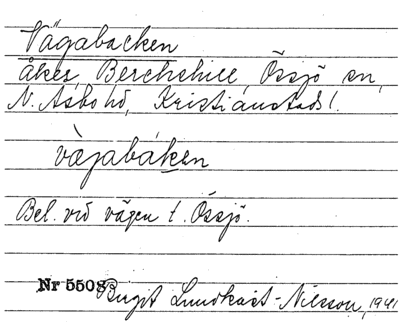 Vägabacken
åker, Berchshill, Össjö sn,
N. Åsbo hd, Kristianstads l.
vàgabáken
Bel. vid vägen t. Össjö.
Nr 5508 Birgit Lundkvist-Nilsson, 1941